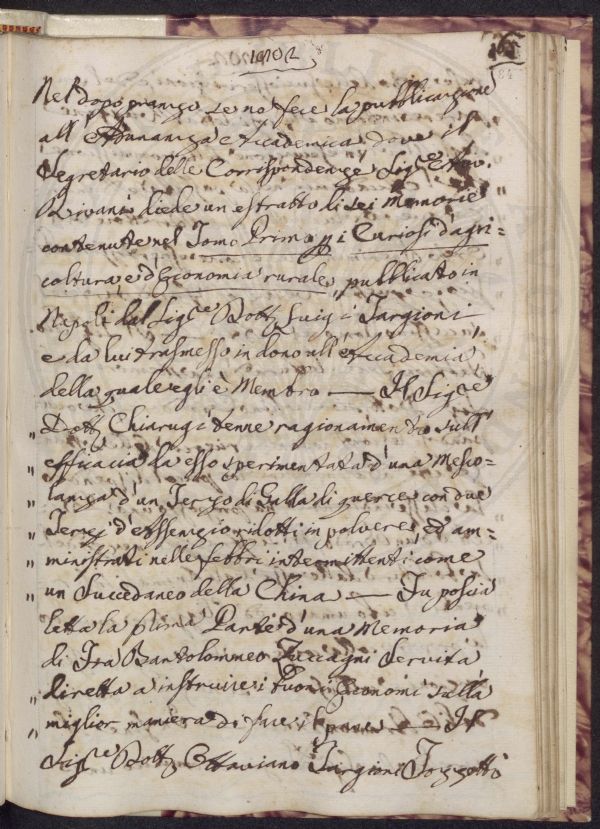 1802
84
Nel dopo pranzo se ne fece la pubblicazione
all'Adunanza Accademica dove il
Segretario delle Corrispondenze Sig.re
Rivani diede un estratto di sei Memorie
contenute nel Tomo Primo p i Curiosi d'agri=
coltura, e d'Economia rurale, pubblicato in
Napoli dal Sig.re Dott. Luigi Targioni
e da lui trasmesso in dono all'Accademia
della quale egli è Membro — Il Sig.re
" Dott. Chiarugi tenne ragionamento sull'
" efficacia da esso sperimentata d'una Mesco=
" lanza d'un Terzo di Galla di querce con due
" Terzi d'Assenzio ridotti in polvere, ed am=
" ministrati nelle febbri intermittenti come
" un Succedaneo della China — Fu poscia
letta la prima Parte d'una Memoria
di Fra Bartolommeo Zuccagni Servita
" diretta a instruire i buoni Economi sulla
" miglior maniera di fare il pane — Il
Sig.re Dott. Ottaviano Targioni Tozzetti